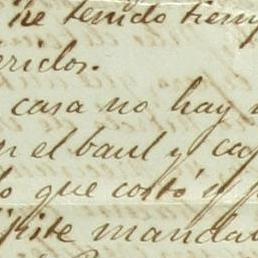 he tenido tiemp
eridos.
casa no hay
n el baul y caj
lo que costó y
mandar